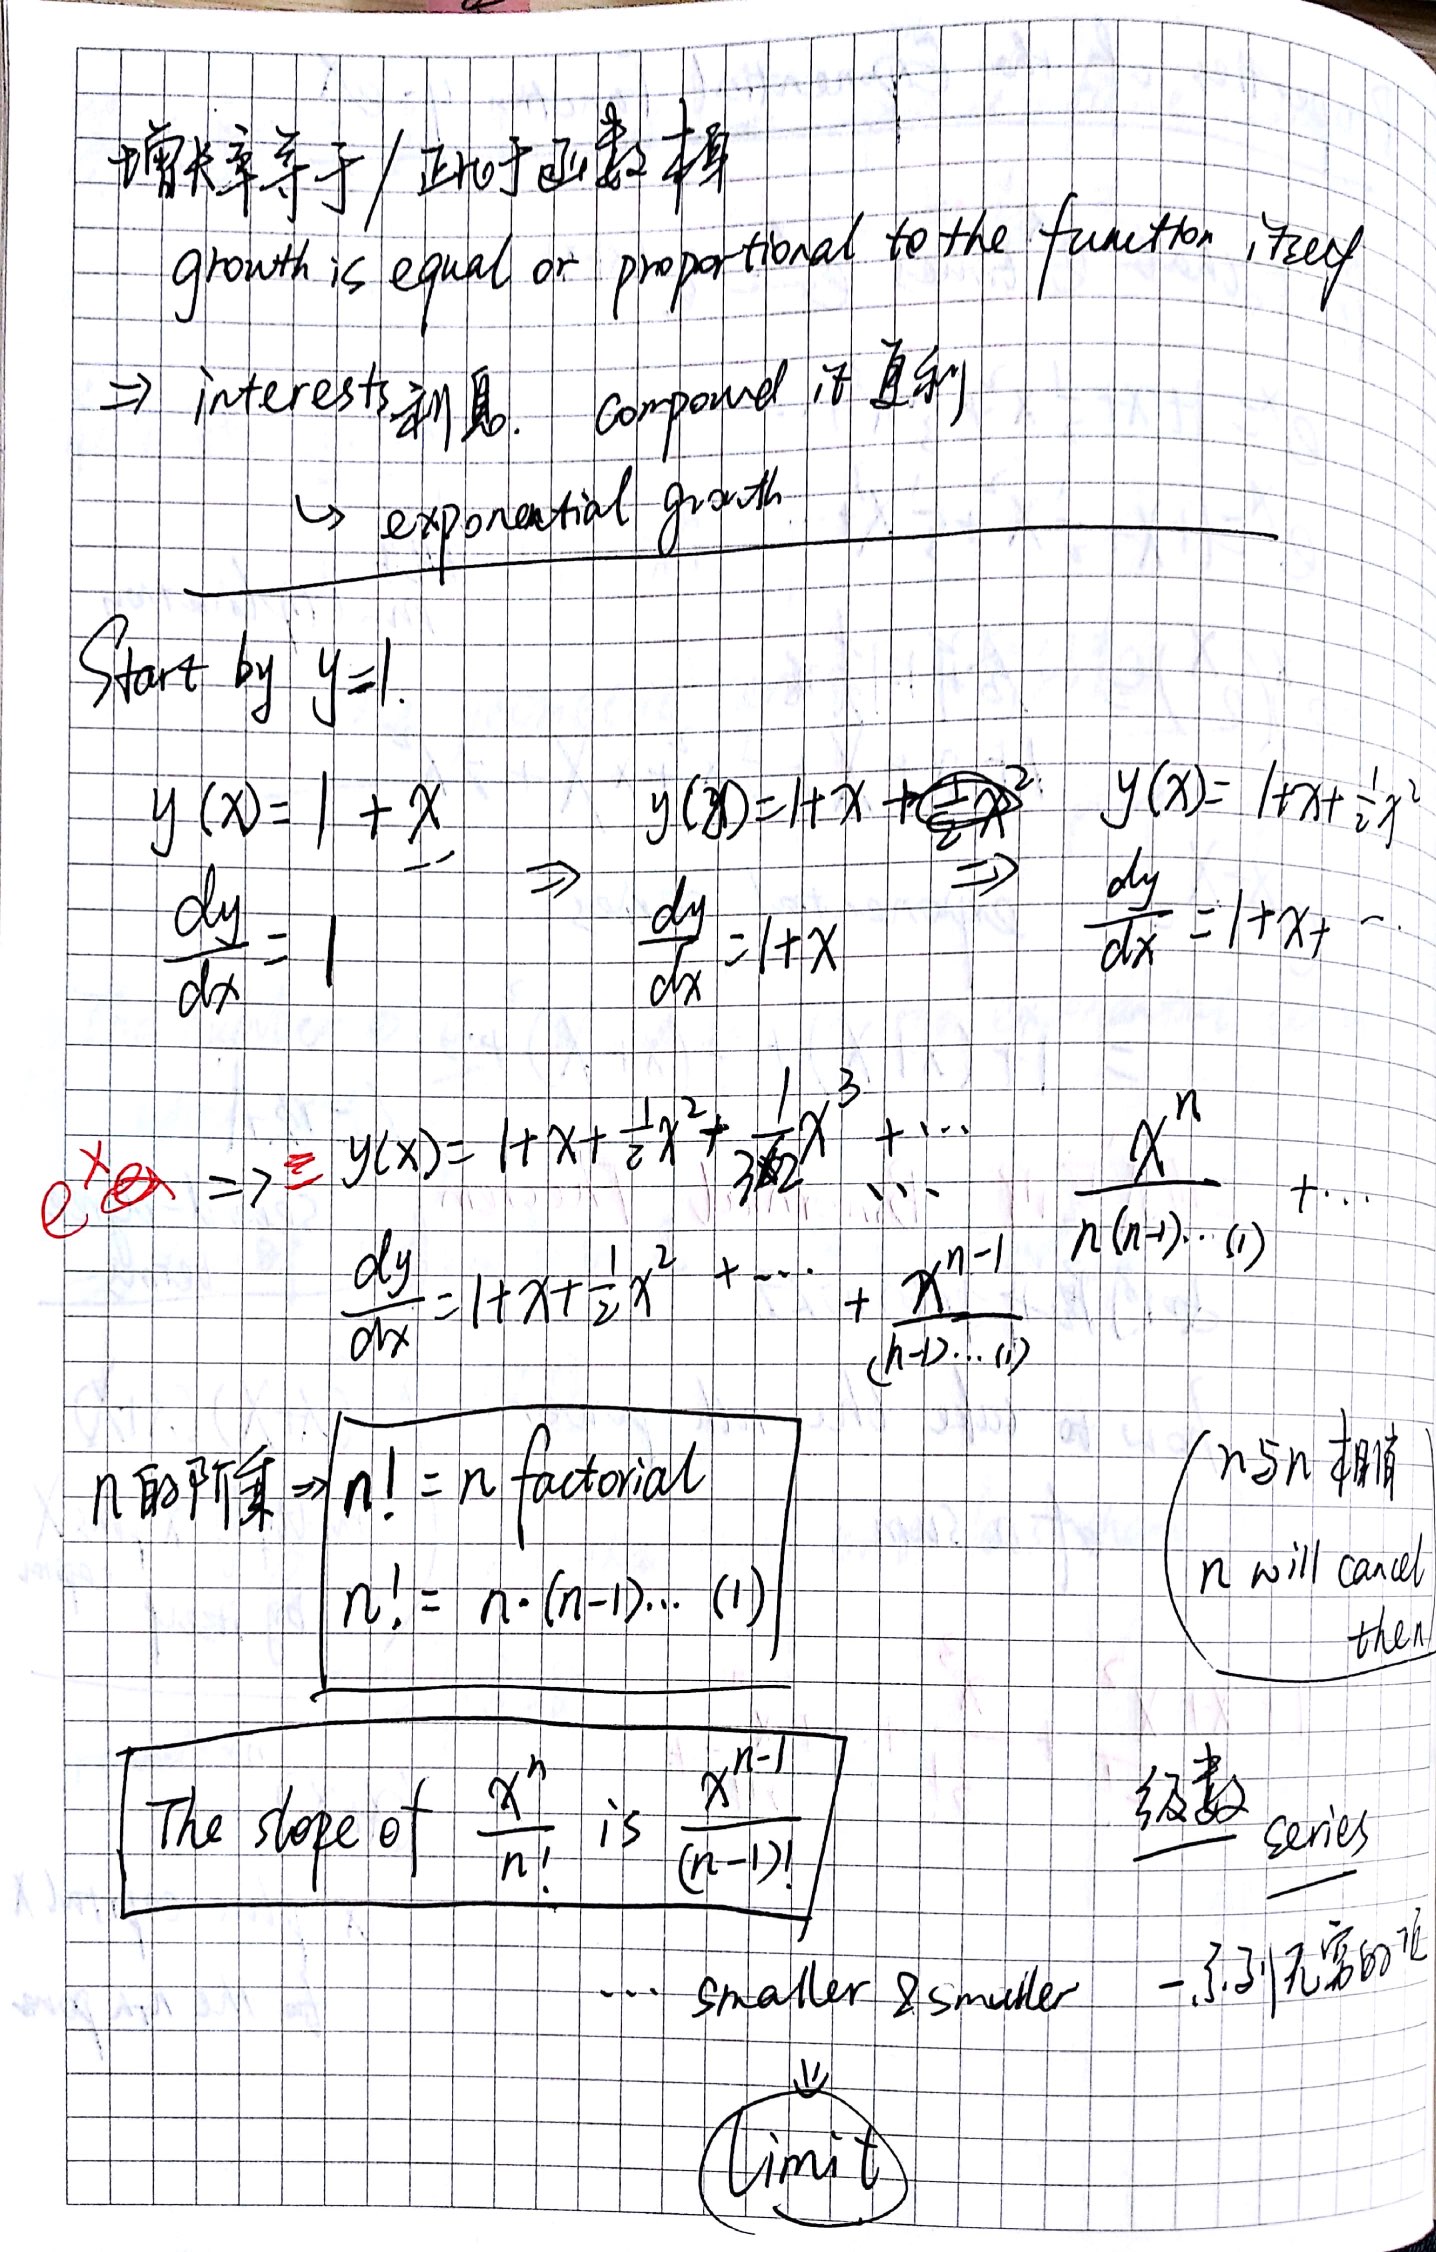 增长率等于/正比于函数本身
growth is equal or proportional to the function itself
⇒ interests 利息. compound it 复利
↳ exponential growth
Start by y=1.
y(x)= 1 + x ⇒ y(x)=1+x+½x² ⇒ y(x)= 1+x+½x²
dy/dx = 1 dy/dx = 1+x dy/dx = 1+x+ ...
eˣ => = y(x)= 1+x+½x²+ 1/(3·2) x³ + ... ... xⁿ/(n(n-1)...(1)) + ...
dy/dx = 1+x+½x² + ... + xⁿ⁻¹/((n-1)...(1))
n的阶乘 ⇒ n! = n factorial
n! = n·(n-1)... (1)
(n与n相消
n will cancel
then
The slope of xⁿ/n! is xⁿ⁻¹/(n-1)!
级数 series
... smaller & smaller
一系列无穷的
limit